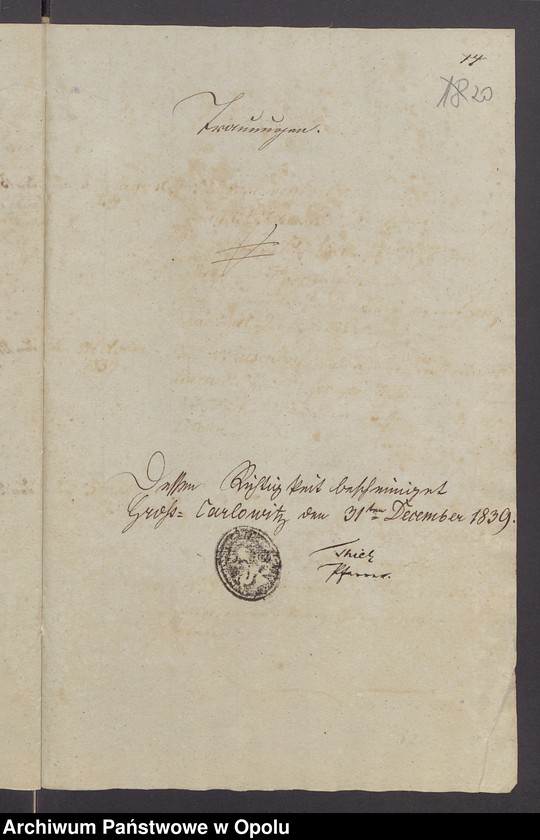 14
1820
Trauungen.
Dessen Richtigkeit bescheiniget
Groß= Carlowitz den 31ten December 1839.
Pfarrer.
Archiwum Państwowe w Opolu